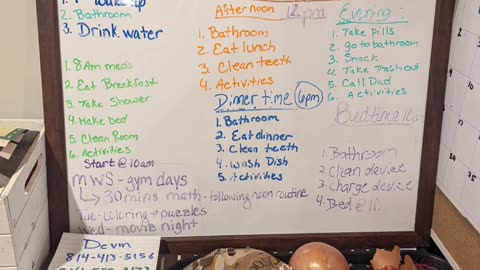 wake up
2. Bathroom
3. Drink water
1. 8 Am meds
2. Eat Breakfast
3. Take Shower
4. Make bed
5. Clean Room
6. Activities
Start @ 10am
MWS - gym days
30 mins math - following noon routine
Tue - coloring & puzzles
Wed - movie night
Devin
814-413-5156
Afternoon 12pm
1. Bathroom
2. Eat lunch
3. Clean teeth
4. Activities
Dinner time (6pm)
1. Bathroom
2. Eat dinner
3. Clean teeth
4. Wash Dish
5. Activities
Evening:
1. Take pills
2. go to bathroom
3. Snack
4. Take Trash out
5. Call Dad
6. Activities
Bedtime 10
1. Bathroom
2. Clean device
3. Charge device
4. Bed @ 10